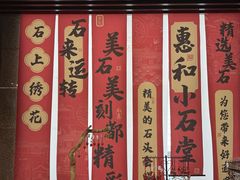 石上绣花
石来运转
美石美刻都精彩
精美的石头会
惠和小石堂
精选美石
为您带来好运